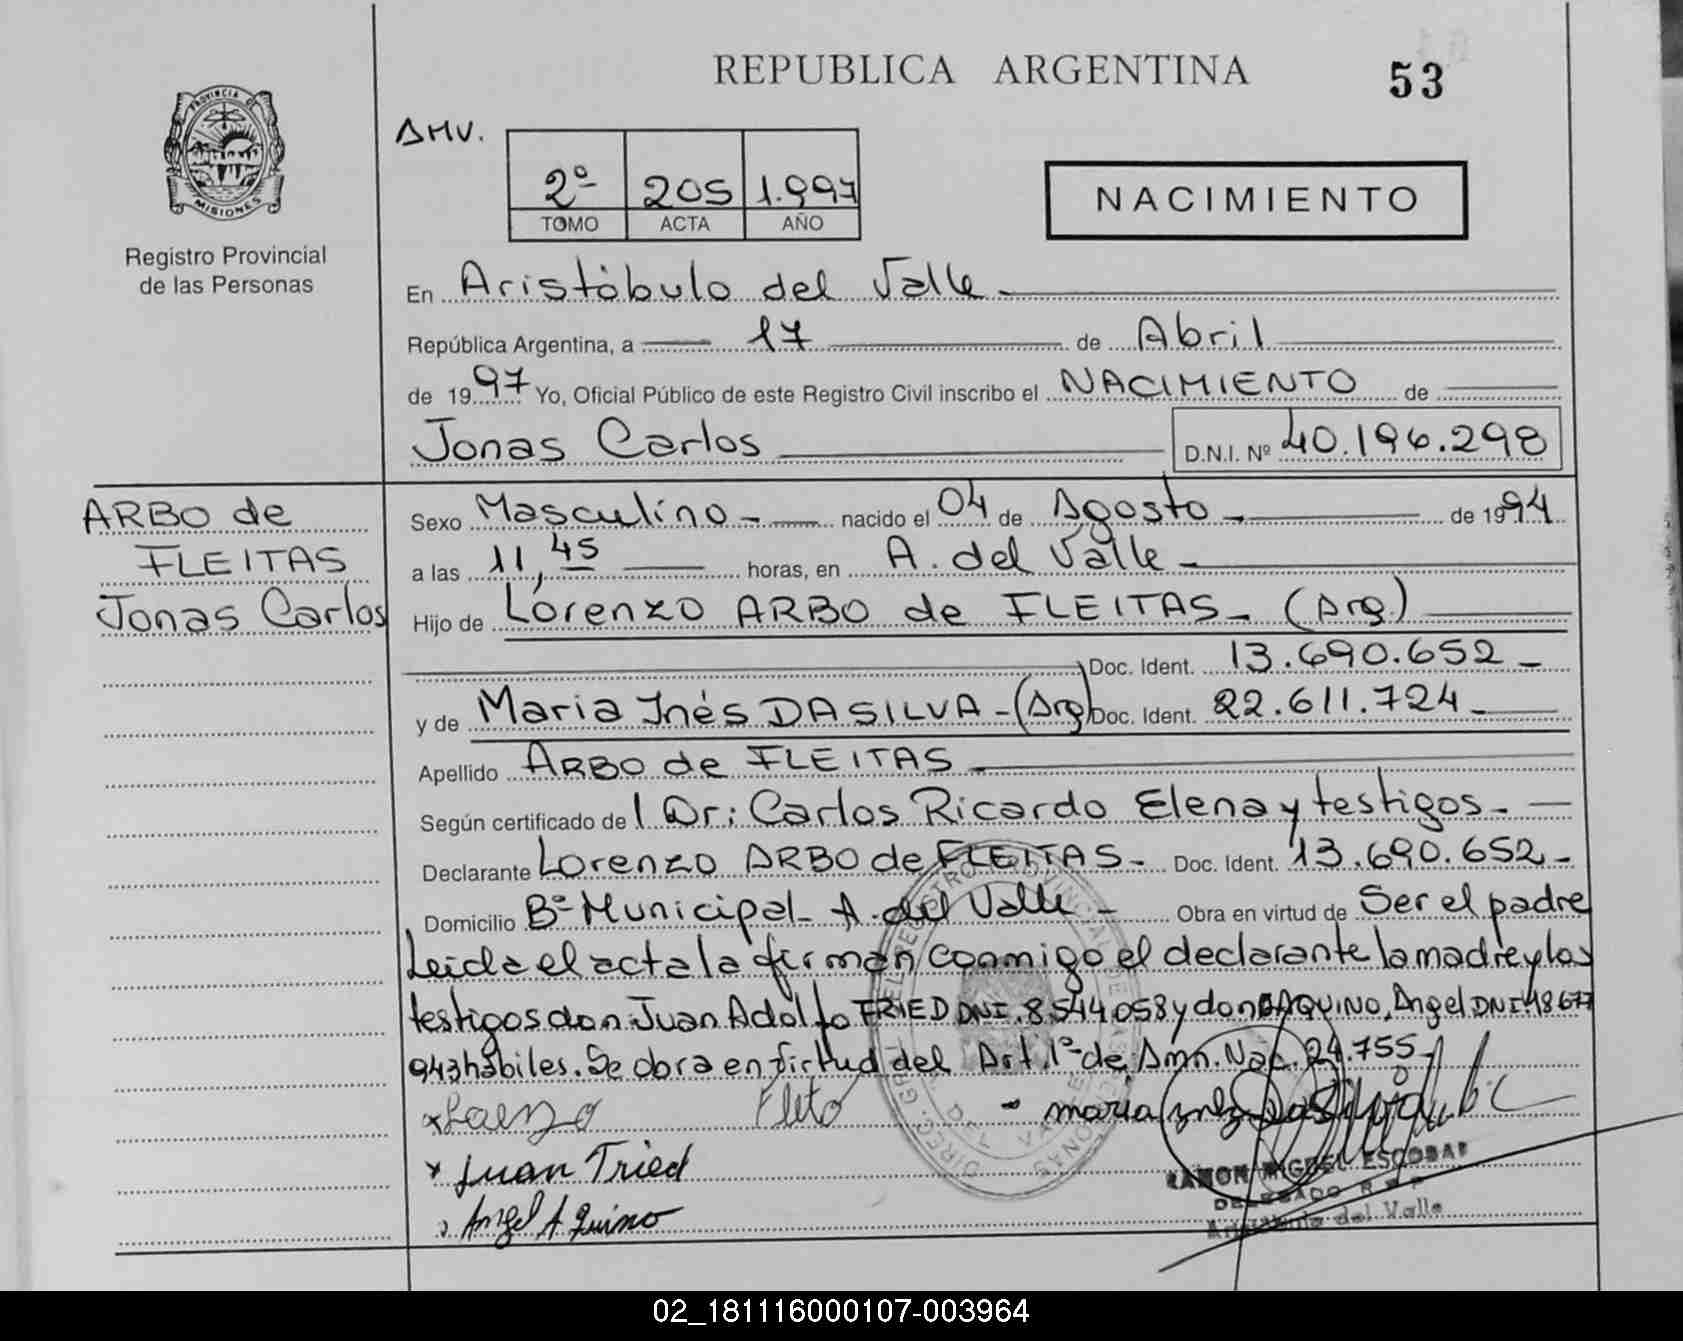 REPUBLICA ARGENTINA
53
PROVINCIA DE
MISIONES
Registro Provincial
de las Personas
AMV.
2º 205 1.997
TOMO ACTA AÑO
NACIMIENTO
En Aristóbulo del Valle
República Argentina, a 17 de Abril
de 1997 Yo, Oficial Público de este Registro Civil inscribo el NACIMIENTO de
Jonas Carlos D.N.I. Nº 40.196.298
ARBO de
FLEITAS
Jonas Carlos
Sexo Masculino nacido el 04 de Agosto de 1994
a las 11,45 horas, en A. del Valle
Hijo de Lorenzo ARBO de FLEITAS - (Arg.)
Doc. Ident. 13.690.652
y de Maria Inés DA SILVA - (Arg) Doc. Ident. 22.611.724
Apellido ARBO de FLEITAS
Según certificado de l Dr: Carlos Ricardo Elena y testigos
Declarante Lorenzo ARBO de FLEITAS Doc. Ident. 13.690.652
Domicilio Bº Municipal - A. del Valle - Obra en virtud de Ser el padre
Leida el acta la firman conmigo el declarante la madre y los
testigos don Juan Adolfo FRIED DNI. 8.544.058 y don AQUINO, Angel DNI. 18 677
943 hábiles. Se obra en virtud del Art. 1º de Amn. Nac. 24.755
maria
Juan Fried
Angel A Quino
RAMON MIGUEL ESCOBAR
DELEGADO R P P
Aristobulo del Valle
02_181116000107-003964